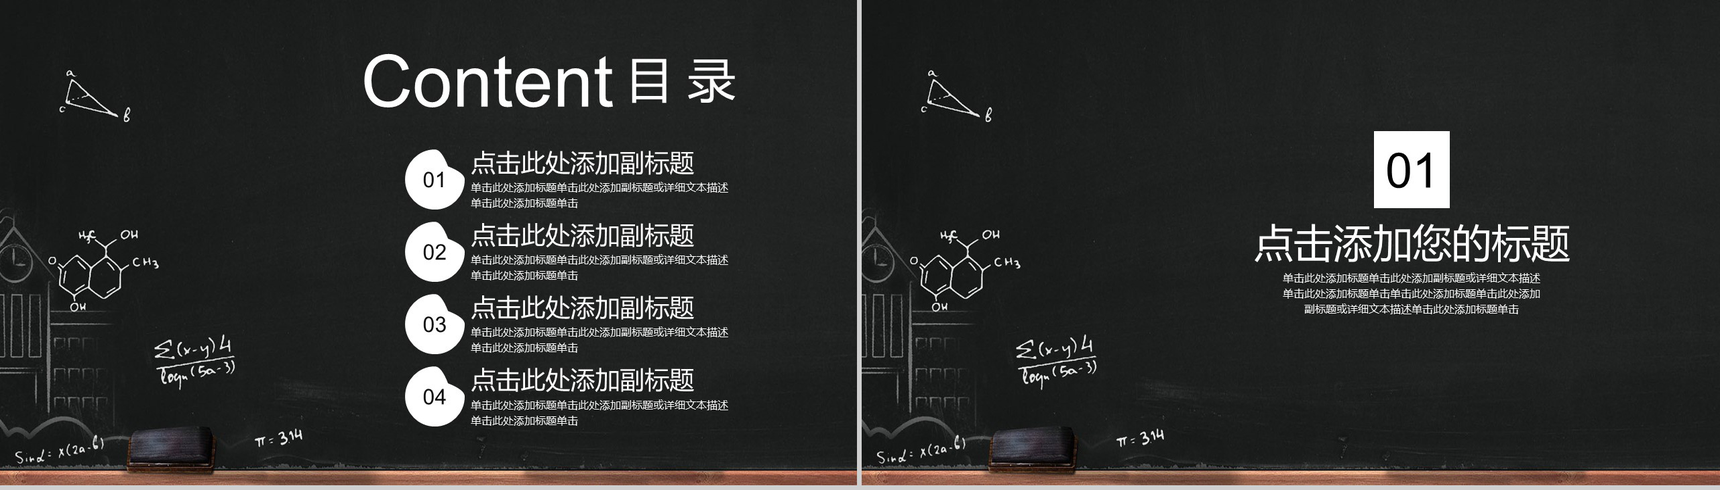 Content 目 录
01
点击此处添加副标题
单击此处添加标题单击此处添加副标题或详细文本描述
单击此处添加标题单击
02
点击此处添加副标题
单击此处添加标题单击此处添加副标题或详细文本描述
单击此处添加标题单击
03
点击此处添加副标题
单击此处添加标题单击此处添加副标题或详细文本描述
单击此处添加标题单击
04
点击此处添加副标题
单击此处添加标题单击此处添加副标题或详细文本描述
单击此处添加标题单击
a
c
b
H₃C OH
O
CH₃
OH
Σ(x-y)4
logn(5a-3)
Sinα= x(2a-b)
π=3.14
01
点击添加您的标题
单击此处添加标题单击此处添加副标题或详细文本描述
单击此处添加标题单击单击此处添加标题单击此处添加
副标题或详细文本描述单击此处添加标题单击
a
c
b
H₃C OH
O
CH₃
OH
Σ(x-y)4
logn(5a-3)
Sinα= x(2a-b)
π=3.14